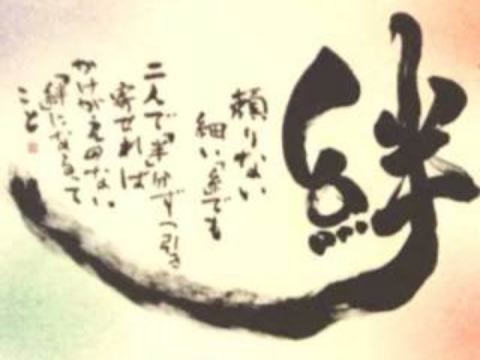 絆
頼りない
細い「糸」でも
二人で「半」分ずつ引き
寄せれば
かけがえのない
「絆」になるって
こと